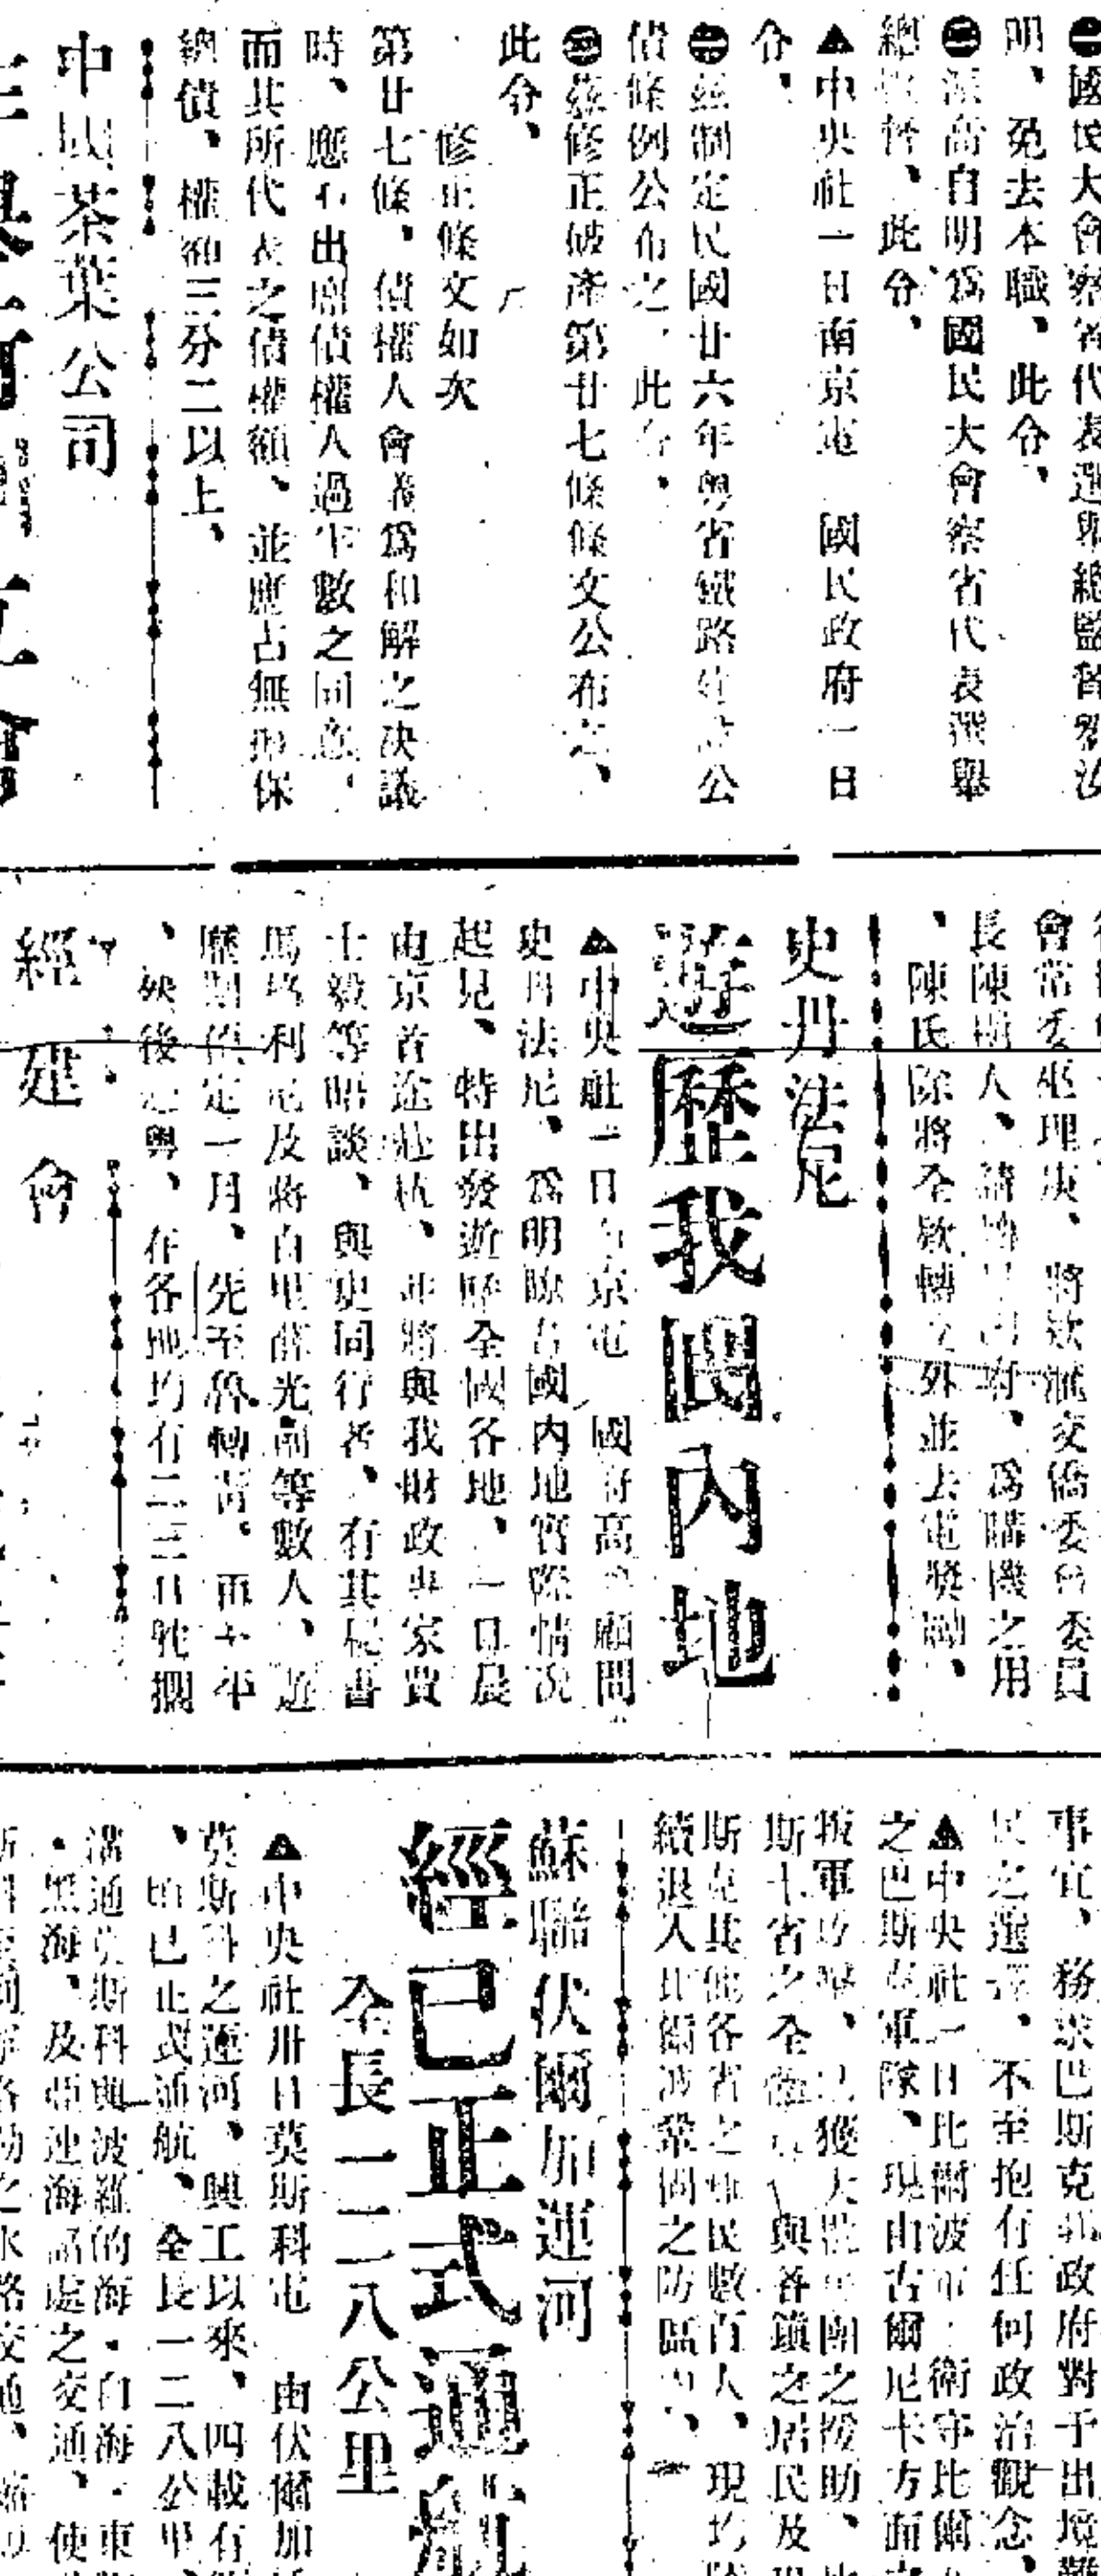 國民大會察省代表選舉總監督劉汝
明、免去本職、此令、
㊁派高自明爲國民大會察省代表選舉
總監督、此令、
▲中央社一日南京電　國民政府一日
令、
㊀茲制定民國廿六年粤省鐵路建設公
債條例公布之、此令、
㊁茲修正破產第廿七條條文公布之、
此令、
修正條文如次
第廿七條、債權人會議爲和解之决議
時、應有出席債權人過半數之同意、
而其所代表之債權額、並應占無擔保
總債、權額三分二以上、
中國茶葉公司
會常委巫理庚、將欵滙交僑委會委員
長陳樹人、請轉　府、爲購機之用
、陳氏除將全欵轉交外並去電獎勵、
史丹法尼
遊歷我國內地
▲中央社一日南京電　國府高　顧問
史丹法尼、爲明瞭吾國內地實際情况
起見、特出發遊歷全國各地、一日晨
由京首途赴杭、并將與我財政專家賈
士毅等晤談、與史同行者、有其秘書
馬　利尼及蔣百里薛光前等數人、遊
歷期假定一月、先至魯轉晋、再　平
、然後　粤、在各地均有二三日躭擱
經建會
事宜、務求巴斯克　政府對于出境難
民之選擇、不至抱有任何政治觀念、
▲中央社一日比爾波電　衛守比爾
之巴斯克軍隊、現由古爾尼卡方面
叛軍攻擊、已獲大批　團之援助、
斯十省之全體　與各鎮之居民及
斯克其他各省之　民數百人、現均
續退入比爾波鞏固之防區內、
蘇聯伏爾加運河
經已正式通航
全長一二八公里
▲中央社卅日莫斯科電　由伏爾加
莫斯科之運河、興工以來、四載有
、頃已正式通航、全長一二八公里、
溝通莫斯科與波羅的海・白海・東
・黑海、及亞速海諸處之交通、使
之水路交通、